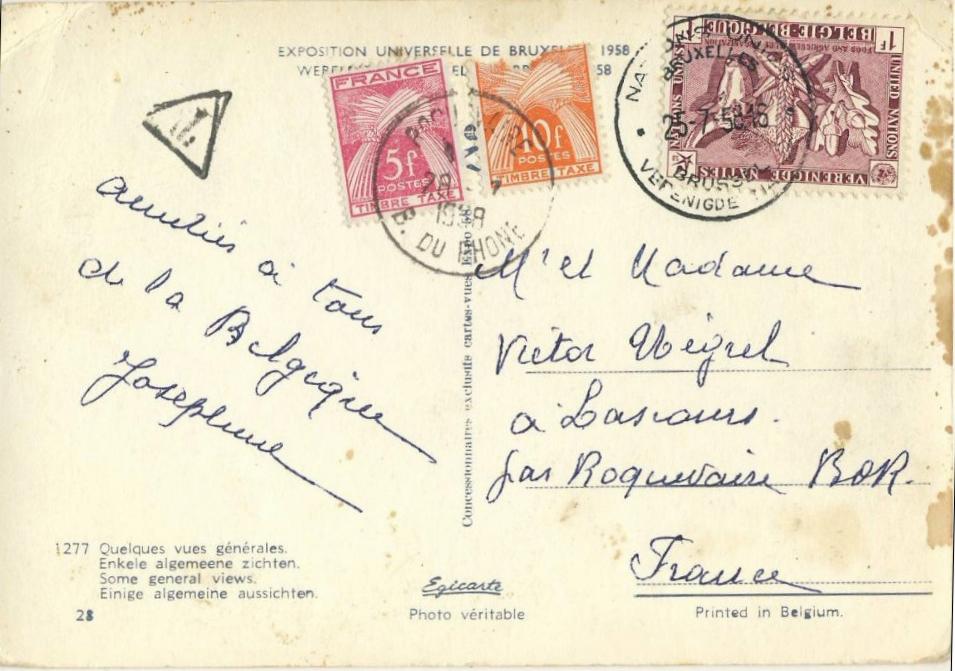 EXPOSITION UNIVERSELLE DE BRUXELLES 1958
FRANCE
5f
POSTES
TIMBRE TAXE
10f
POSTES
TIMBRE TAXE
1958
B. DU RHONE
1F
BELGIE-BELGIQUE
FOOD AND AGRICULTURE ORGANIZATION
UNITED NATIONS
NATIONS UNIES
VERENIGDE NATIES
NATIONS UNIES
BRUXELLES
25-7-58-16
BRUSSEL
VERENIGDE NATIES
T
amitiés à tous
de la Belgique
Josephine
Mr et Madame
Victor Négrel
à Lascours.
par Roquevaire B.D.R.
France
Concessionnaires exclusifs cartes-vues Expo 58
1277 Quelques vues générales.
Enkele algemeene zichten.
Some general views.
Einige algemeine aussichten.
28
Egicarte
Photo véritable
Printed in Belgium.